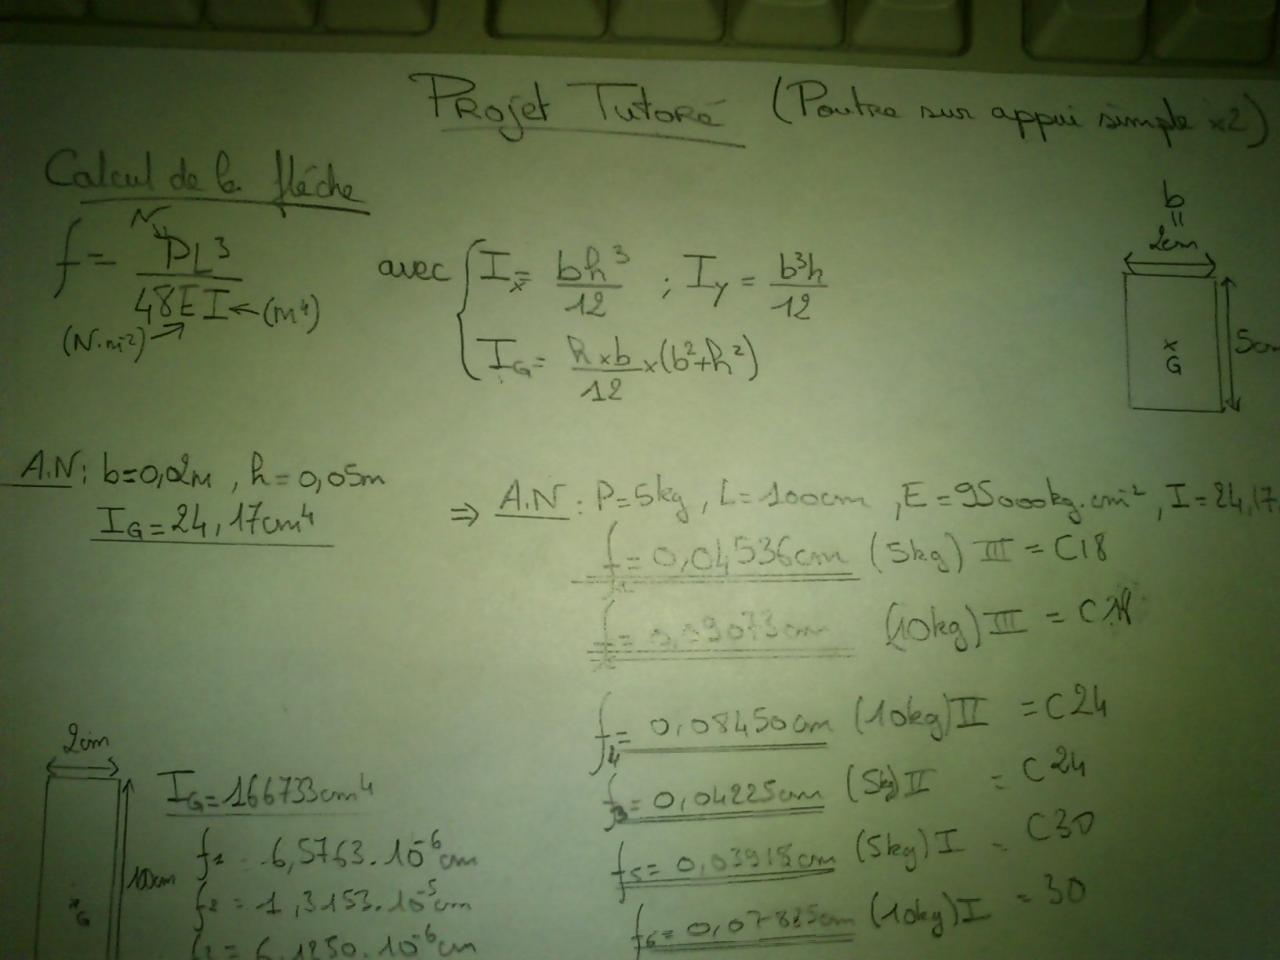 Projet Tutoré (Poutre sur appui simple x2)
Calcul de la fléche
f = PL³ / 48EI avec { Ix = bh³/12 ; Iy = b³h/12
N
(N.m⁻²) (m⁴)
IG = h×b/12 × (b²+h²)
b
=
2cm
5cm
x
G
A.N : b=0,02m , h=0,05m
IG = 24,17cm⁴
⇒ A.N : P=5kg , L=100cm , E=95000kg.cm⁻² , I=24,17
f1= 0,04536cm (5kg) III = C18
f2= 0,09073cm (10kg) III = C18
f4= 0,08450cm (10kg) II = C24
f3= 0,04225cm (5kg) II = C24
f5= 0,03918cm (5kg) I = C30
f6= 0,07835cm (10kg) I = 30
2cm
100cm
x
G
IG = 166733cm⁴
f1 = 6,5763.10⁻⁶cm
f2 = 1,3153.10⁻⁵cm
= 6,1250.10⁻⁶cm